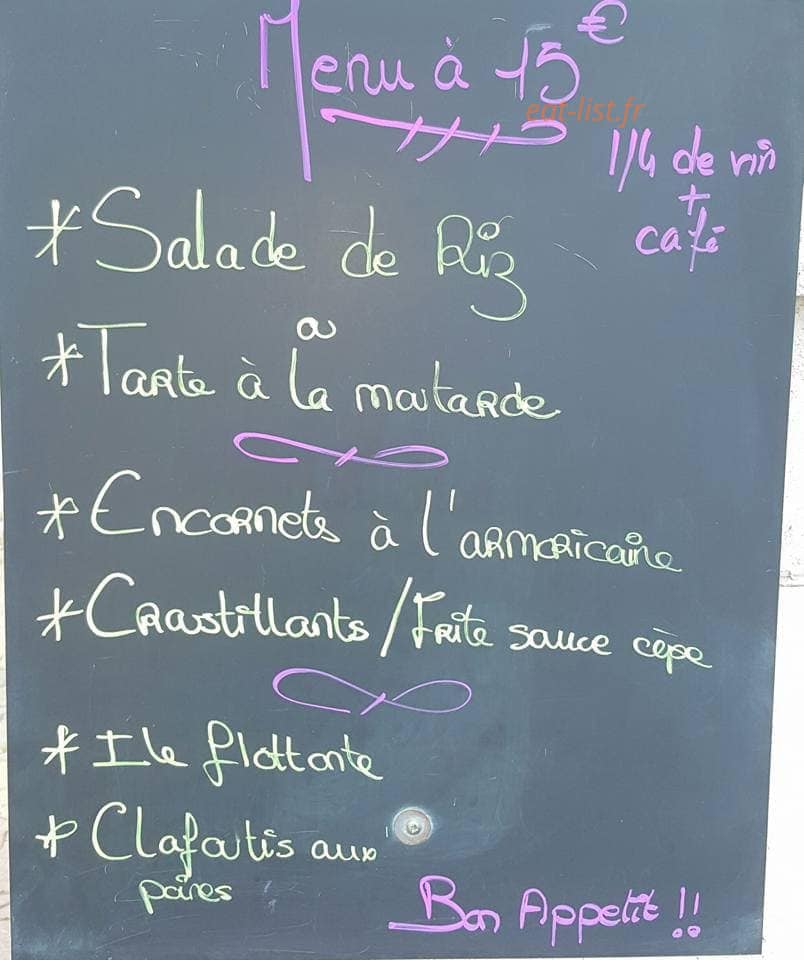 Menu à 15€
eat-list.fr
1/4 de vin
+
café
* Salade de Riz
* Tarte à la moutarde
* Encornets à l'armoricaine
* Croustillants / Frite sauce cèpe
* Ile flottante
* Clafoutis aux
poires
Bon Appetit !!